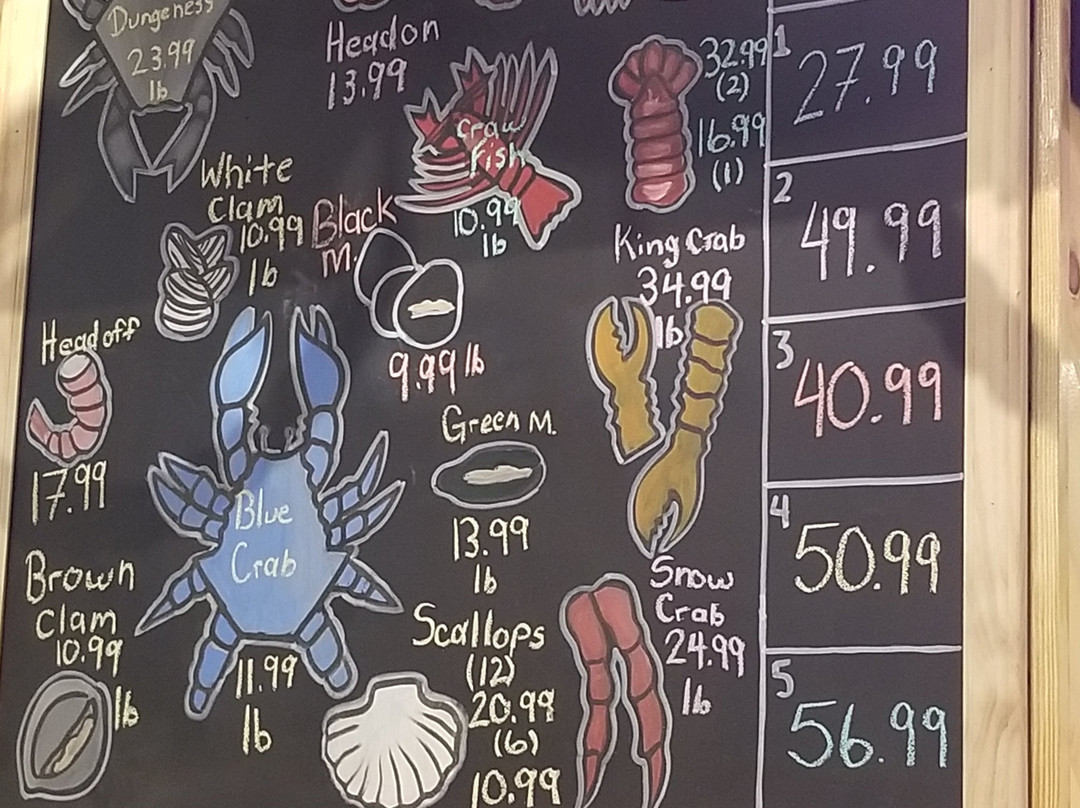 Dungeness
23.99
lb
Headon
13.99
Craw
Fish
10.99
lb
32.99
(2)
16.99
(1)
White
Clam
10.99
lb
Black
M.
9.99 lb
King Crab
34.99
lb
Headoff
17.99
Blue
Crab
11.99
lb
Green M.
13.99
lb
Brown
Clam
10.99
lb
Scallops
(12)
20.99
(6)
10.99
Snow
Crab
24.99
lb
1
27.99
2
49.99
3
40.99
4
50.99
5
56.99